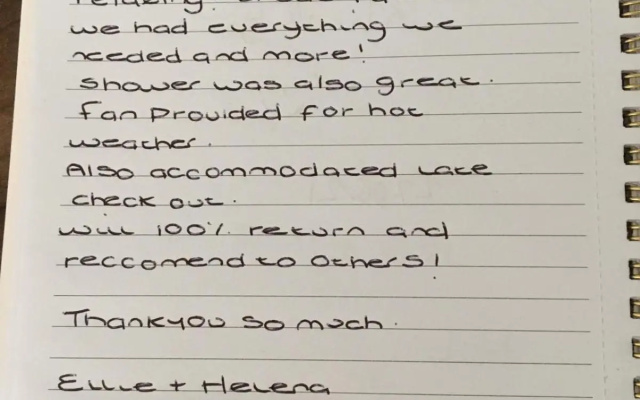 we had everything we
needed and more!
shower was also great.
fan provided for hot
weather.
Also accommodated late
check out.
will 100% return and
reccomend to others!
Thankyou so much.
Ellie + Helena